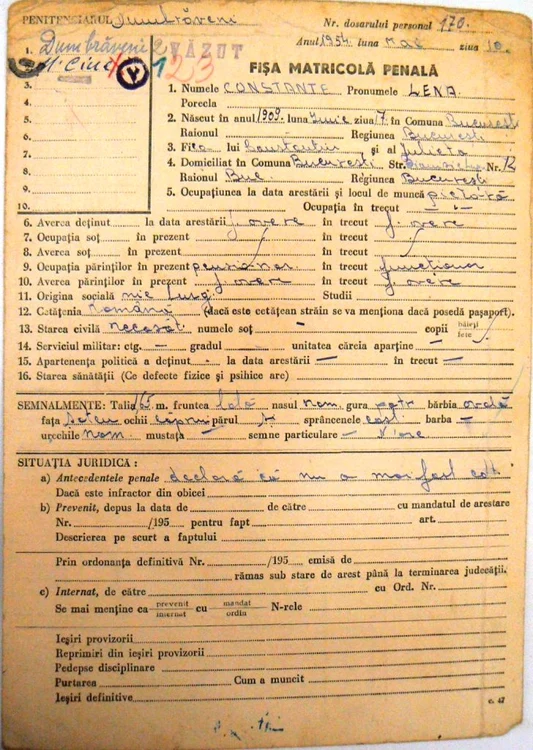 PENITENCIARUL Dumbrăveni
Nr. dosarului personal 170.
Anul 1954. luna Mai ziua 10.
1. Dumbrăveni
2 VĂZUT
M. Ciuc
123
FIȘA MATRICOLĂ PENALĂ
3.
4.
5.
6.
7.
8.
9.
10.
1. Numele CONSTANTE Pronumele LENA.
Porecla
2. Născut în anul 1909. luna Iunie ziua 7. în Comuna București
Raionul Regiunea București
3. Fica lui Constantin și al Julieta
4. Domiciliat în Comuna București Str. Nr. 12
Raionul Buc. Regiunea București
5. Ocupațiunea la data arestării și locul de muncă pictoră
Ocupația în trecut -
6. Averea deținut la data arestării n'avere în trecut n'avere
7. Ocupația soț în prezent în trecut
8. Averea soț în prezent în trecut
9. Ocupația părinților în prezent pensionar. în trecut funcționar
10. Averea părinților în prezent n'avere în trecut n'avere
11. Origina socială mic burg. Studii
12. Cetățenia Română (dacă este cetățean străin se va menționa dacă posedă pașaport).
13. Starea civilă necăsăt. numele soț - copii băieți fete
14. Serviciul militar: ctg. — gradul unitatea căreia aparține —
15. Apartenența politică a deținut - la data arestării — în trecut —
16. Starea sănătății (Ce defecte fizice și psihice are)
SEMNALMENTE: Talia 165 m. fruntea lată nasul nom. gura potr bărbia ovală
fața ochii căprui părul sprâncenele cast. barba —
urechile nom. mustața — semne particulare — N'are
SITUAȚIA JURIDICĂ :
a) Antecedentele penale declară că nu a mai fost cond.
Dacă este infractor din obicei
b) Prevenit, depus la data de de către cu mandatul de arestare
Nr. /195 pentru fapt art.
Descrierea pe scurt a faptului
Prin ordonanța definitivă Nr. /195 emisă de
rămas sub stare de arest până la terminarea judecății.
c) Internat, de către cu Ord. Nr.
Se mai menține ca prevenit internat cu mandat ordin N-rele
Ieșiri provizorii
Reprimiri din ieșiri provizorii
Pedepse disciplinare
Purtarea Cum a muncit
Ieșiri definitive
c. 47